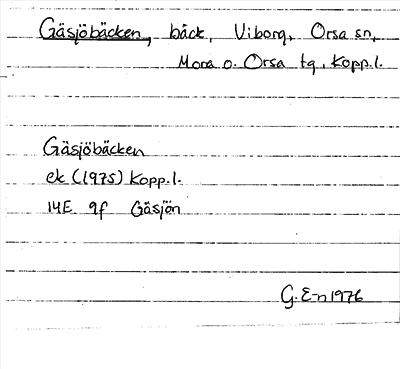 Gäsjöbäcken, bäck, Viborg, Orsa sn,
Mora o. Orsa tg, Kopp.l.
Gäsjöbäcken
ek (1975) Kopp.l.
14E 9f Gäsjön
G. E-n 1976